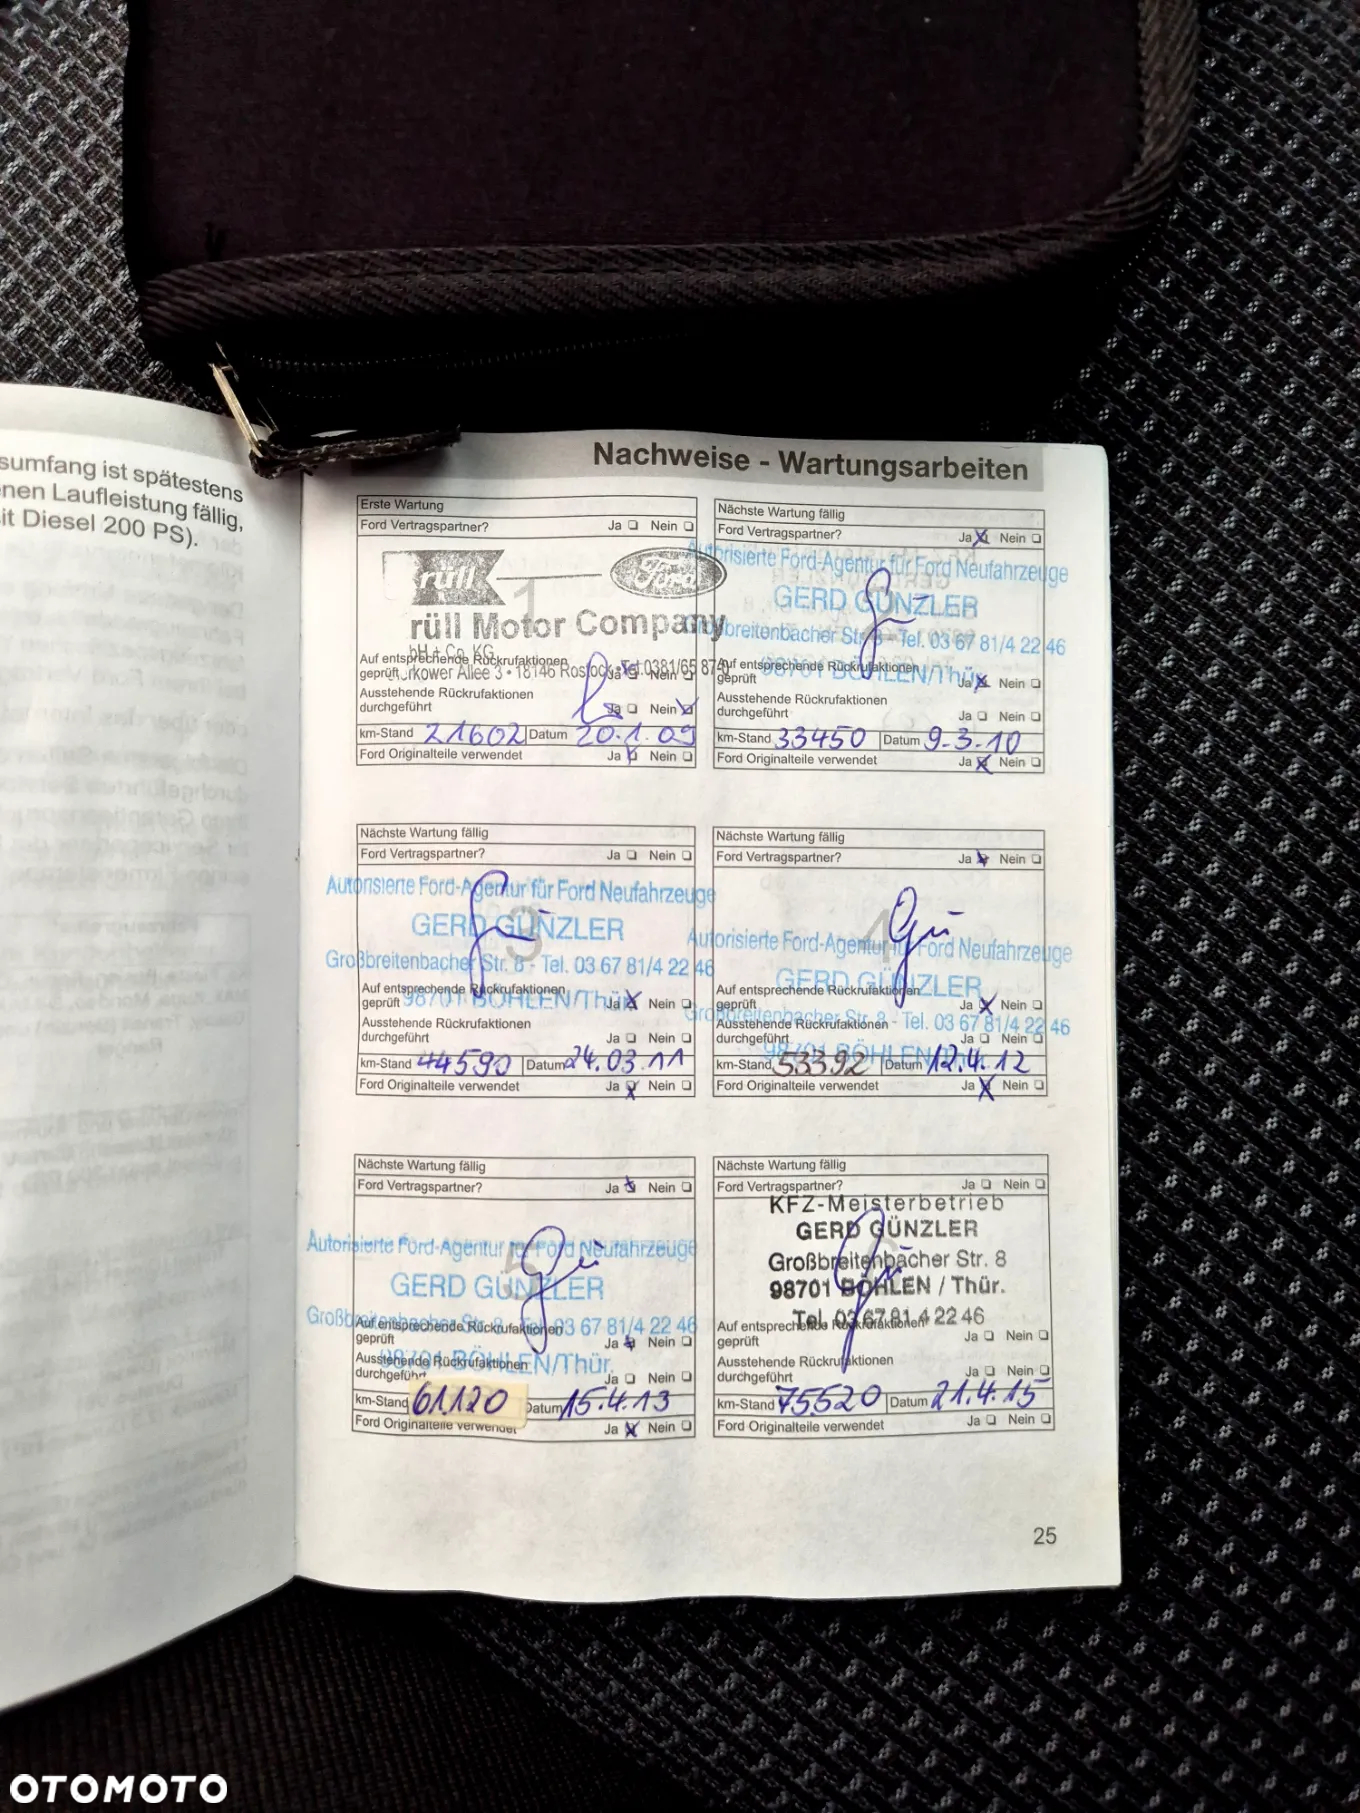 sumfang ist spätestens
nen Laufleistung fällig,
it Diesel 200 PS).
Nachweise - Wartungsarbeiten
Erste Wartung
Ford Vertragspartner? Ja Nein
rüll Ford
1
rüll Motor Company
bH + Co. KG
Auf entsprechende Rückrufaktionen
geprüft rkower Allee 3 • 18146 Rostock • Tel. 0381/65 87 Ja Nein
Ausstehende Rückrufaktionen
durchgeführt Ja Nein
km-Stand 21602 Datum 20.1.09
Ford Originalteile verwendet Ja Nein
Nächste Wartung fällig
Ford Vertragspartner? Ja Nein
Autorisierte Ford-Agentur für Ford Neufahrzeuge
GERD GÜNZLER
Großbreitenbacher Str. 8 - Tel. 03 67 81/4 22 46
98701 BÖHLEN/Thür.
Auf entsprechende Rückrufaktionen
geprüft Ja Nein
Ausstehende Rückrufaktionen
durchgeführt Ja Nein
km-Stand 33450 Datum 9.3.10
Ford Originalteile verwendet Ja Nein
Nächste Wartung fällig
Ford Vertragspartner? Ja Nein
Autorisierte Ford-Agentur für Ford Neufahrzeuge
3
GERD GÜNZLER
Großbreitenbacher Str. 8 - Tel. 03 67 81/4 22 46
98701 BÖHLEN/Thür.
Auf entsprechende Rückrufaktionen
geprüft Ja Nein
Ausstehende Rückrufaktionen
durchgeführt Ja Nein
km-Stand 44590 Datum 24.03.11
Ford Originalteile verwendet Ja Nein
Nächste Wartung fällig
Ford Vertragspartner? Ja Nein
4
Autorisierte Ford-Agentur für Ford Neufahrzeuge
GERD GÜNZLER
Großbreitenbacher Str. 8 - Tel. 03 67 81/4 22 46
98701 BÖHLEN/Thür.
Auf entsprechende Rückrufaktionen
geprüft Ja Nein
Ausstehende Rückrufaktionen
durchgeführt Ja Nein
km-Stand 53392 Datum 12.4.12
Ford Originalteile verwendet Ja Nein
Nächste Wartung fällig
Ford Vertragspartner? Ja Nein
Autorisierte Ford-Agentur für Ford Neufahrzeuge
5
GERD GÜNZLER
Großbreitenbacher Str. 8 - Tel. 03 67 81/4 22 46
98701 BÖHLEN/Thür.
Auf entsprechende Rückrufaktionen
geprüft Ja Nein
Ausstehende Rückrufaktionen
durchgeführt Ja Nein
km-Stand 61120 Datum 15.4.13
Ford Originalteile verwendet Ja Nein
Nächste Wartung fällig
Ford Vertragspartner? Ja Nein
KFZ-Meisterbetrieb
GERD GÜNZLER
Großbreitenbacher Str. 8
98701 BÖHLEN / Thür.
Tel. 03 67 81 4 22 46
Auf entsprechende Rückrufaktionen
geprüft Ja Nein
Ausstehende Rückrufaktionen
durchgeführt Ja Nein
km-Stand 75520 Datum 21.4.15
Ford Originalteile verwendet Ja Nein
25
OTOMOTO